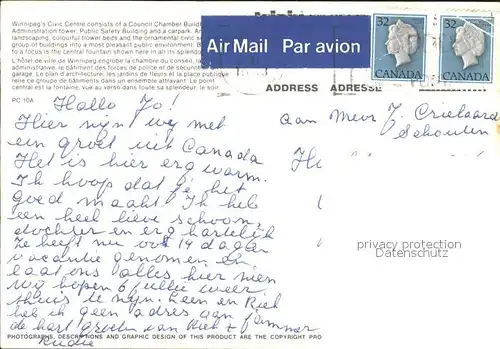 Winnipeg's Civic Centre consists of a Council Chamber Build
Administration tower, Public Safety Building and a carpark. An
landscaping, colourful flower beds and the ornamental entic
group of buildings into a most pleasant public environment. B
is a focus to the central fountain shown here in all its shadow
L'hôtel de ville de Winnipeg engrobe la chamber du conseil,
administrative, le bâtiment des forces de police et de sécurité
garage. Le plan d'architecture, les jardins de fleurs et la place publique
relie ce groupe de bâtiments dans un ensemble attrayant. Le po
la fontaine centrale, vue au verso dans toute sa splendeur, le soir.
PC 10A
Air Mail Par avion
32 CANADA
32 CANADA
ADDRESS ADRESSE
aan Mevr J. Crielaard
Schouten
Hallo Jo!
Hier zijn wij met
een groet uit Canada
Het is hier erg warm.
Ik hoop dat je het
goed maakt. Ik heb
een heel lieve schoon
dochter en erg hartelijk
Ze heeft nu ook 14 dagen
vacantie genomen en
laat ons alles hier zien
Wij hopen 6 jullie weer
thuis te zijn. Leen en Riek
heb ik geen adres van
de hart groeten van Riek +
privacy protection
Datenschutz
PHOTOGRAPHS, DESCRIPTIONS AND GRAPHIC DESIGN OF THIS PRODUCT ARE THE COPYRIGHT PRO